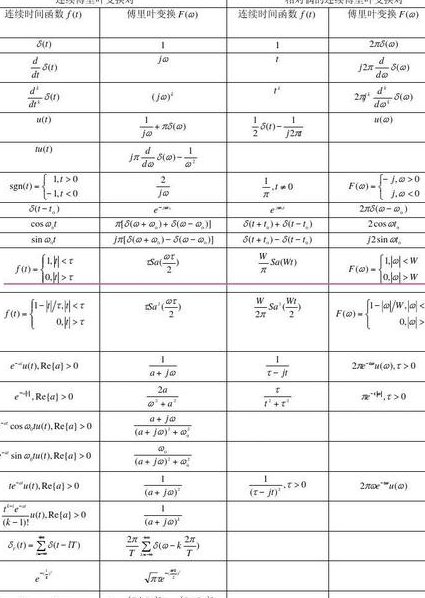 连续傅里叶变换对 相对偶的连续傅里叶变换对
连续时间函数 f(t) 傅里叶变换 F(ω) 连续时间函数 f(t) 傅里叶变换 F(ω)
δ(t) 1 1 2πδ(ω)
d/dt δ(t) jω t j2π d/dω δ(ω)
d^k/dt^k δ(t) (jω)^k t^k 2πj^k d^k/dω^k δ(ω)
u(t) 1/jω + πδ(ω) 1/2 δ(t) − 1/j2πt u(ω)
tu(t) jπ d/dω δ(ω) − 1/ω²
sgn(t) = { 1, t > 0 −1, t < 0 2/jω 1/π , t ≠ 0 F(ω) = { −j, ω > 0 j, ω < 0
δ(t − t₀) 2πδ(ω − ω₀)
cos ω₀t π[δ(ω + ω₀) + δ(ω − ω₀)] δ(t + t₀) + δ(t − t₀) 2cos ωt₀
sin ω₀t jπ[δ(ω + ω₀) − δ(ω − ω₀)] δ(t + t₀) − δ(t − t₀) j2 sin ωt₀
f(t) = { 1, |t| < τ 0, |t| > τ τSa(ωτ/2) W/π Sa(Wt) F(ω) = { 1, |ω| < W 0, |ω| > W
f(t) = { 1 − |t|/τ, |t| < τ 0, |t| > τ τSa²(ωτ/2) W/2π Sa²(Wt/2) F(ω) = { 1 − |ω|/W, |ω| < 0, |ω| >
e^−at u(t), Re{a} > 0 1/(a + jω) 1/(τ − jt) 2πe^−τω u(ω), τ > 0
e^−a|t| , Re{a} > 0 2a/(ω² + a²) τ/(t² + τ²) πe^−τ|ω| , τ > 0
e^−at cos ω₀tu(t), Re{a} > 0 (a + jω)/((a + jω)² + ω₀²)
e^−at sin ω₀tu(t), Re{a} > 0 ω₀/((a + jω)² + ω₀²)
te^−at u(t), Re{a} > 0 1/(a + jω)² 1/(τ − jt)² , τ > 0 2πωe^−τω u(ω)
t^k−1 e^−at/(k − 1)! u(t), Re{a} > 0 1/(a + jω)^k
δ_T(t) = Σ δ(t − lT) 2π/T Σ δ(ω − k 2π/T)